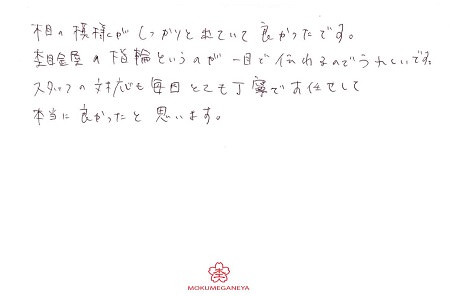 木目の模様がしっかりと出ていて良かったです。
杢目金屋の指輪というのが一目で伝わるのでうれしいです。
スタッフの対応も毎回とても丁寧でお任せして
本当に良かったと思います。
MOKUMEGANEYA